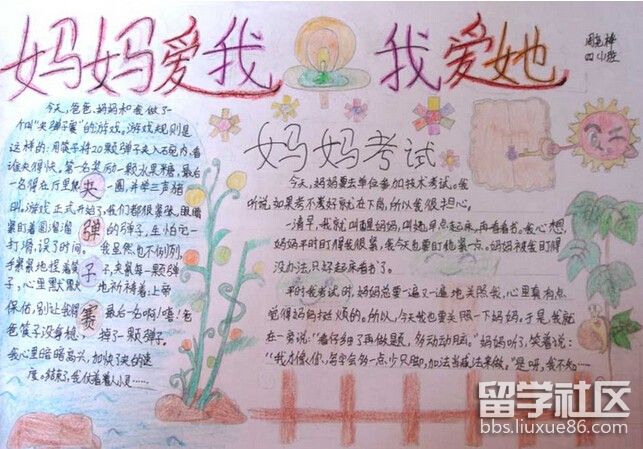 妈妈爱我 我爱她
今天,爸爸、妈妈和我做了一
个叫“夹弹子赛”的游戏。游戏规则是
这样的:用筷子将20颗弹子夹入碗内,看
谁夹得快。第一名奖励一颗水果糖,最后
一名得在厅里爬一圈,并学三声猪
叫。游戏正式开始了,我们都很紧张,眼睛
紧盯着圆溜溜的弹子,生怕它一
打滑,误了时间。我虽然也不例外,
手紧紧地捏着筷子,夹紧每一颗弹
子,心里默默地祈祷着:上帝
保佑,别让我得最后一名啊!嘻!爸
爸筷子没拿稳,掉了一颗弹子。
我心里暗暗高兴,加快了夹的速
度。结束了,我
夹
弹
子
赛
妈妈考试
今天,妈妈要去单位参加技术考试。我
听说,如果考不好就下岗,所以我很担心。
一清早,我就叫醒妈妈,叫她早点起床,再看看书。我心想,
妈妈平时盯得我很紧,我今天也要盯她紧一点。妈妈被我盯得
没办法,只好起床看书了。
平时我考试时,妈妈总要一遍又一遍地关照我,心里真有点
觉得妈妈挺烦的。所以,今天我也要关照一下妈妈。于是,我就
在一旁说:“看仔细了再做题,多动动脑。”妈妈听了,笑着说:
“我才像你,写字会多一点少只脚,加法当减法来做。”是呀,我不知……
四小
留学社区
bbs.liuxue86.com